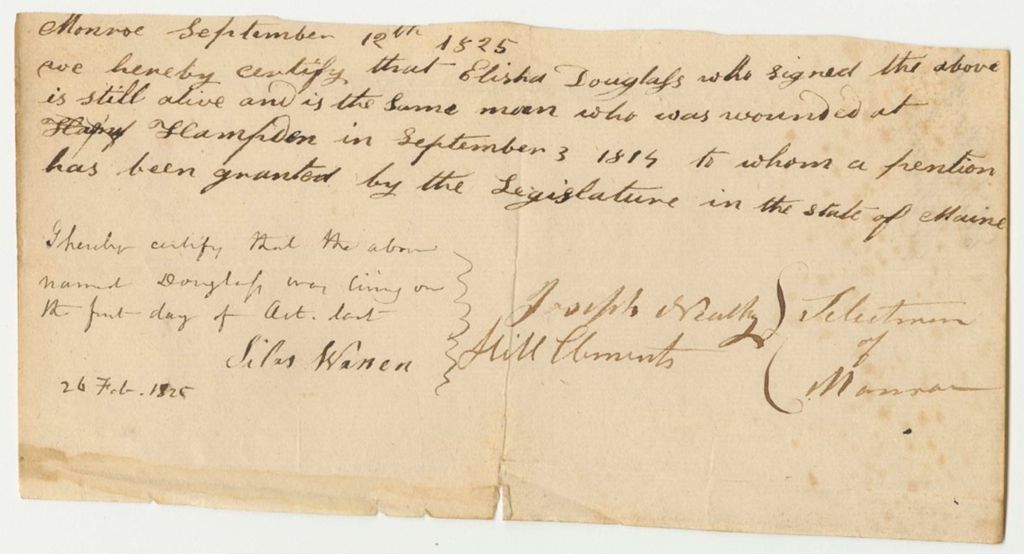 Monroe September 12th 1825
we hereby certify that Elisha Douglass who signed the above
is still alive and is the same man who was wounded at
Hampden in September 3 1814 to whom a pention
has been granted by the Legislature in the state of Maine
I hereby certify that the above
named Douglass was living on
the first day of Oct. last
Silas Warren
26 Feb. 1826
Joseph Nealley
Hill Clements
Selectmen
of
Monroe